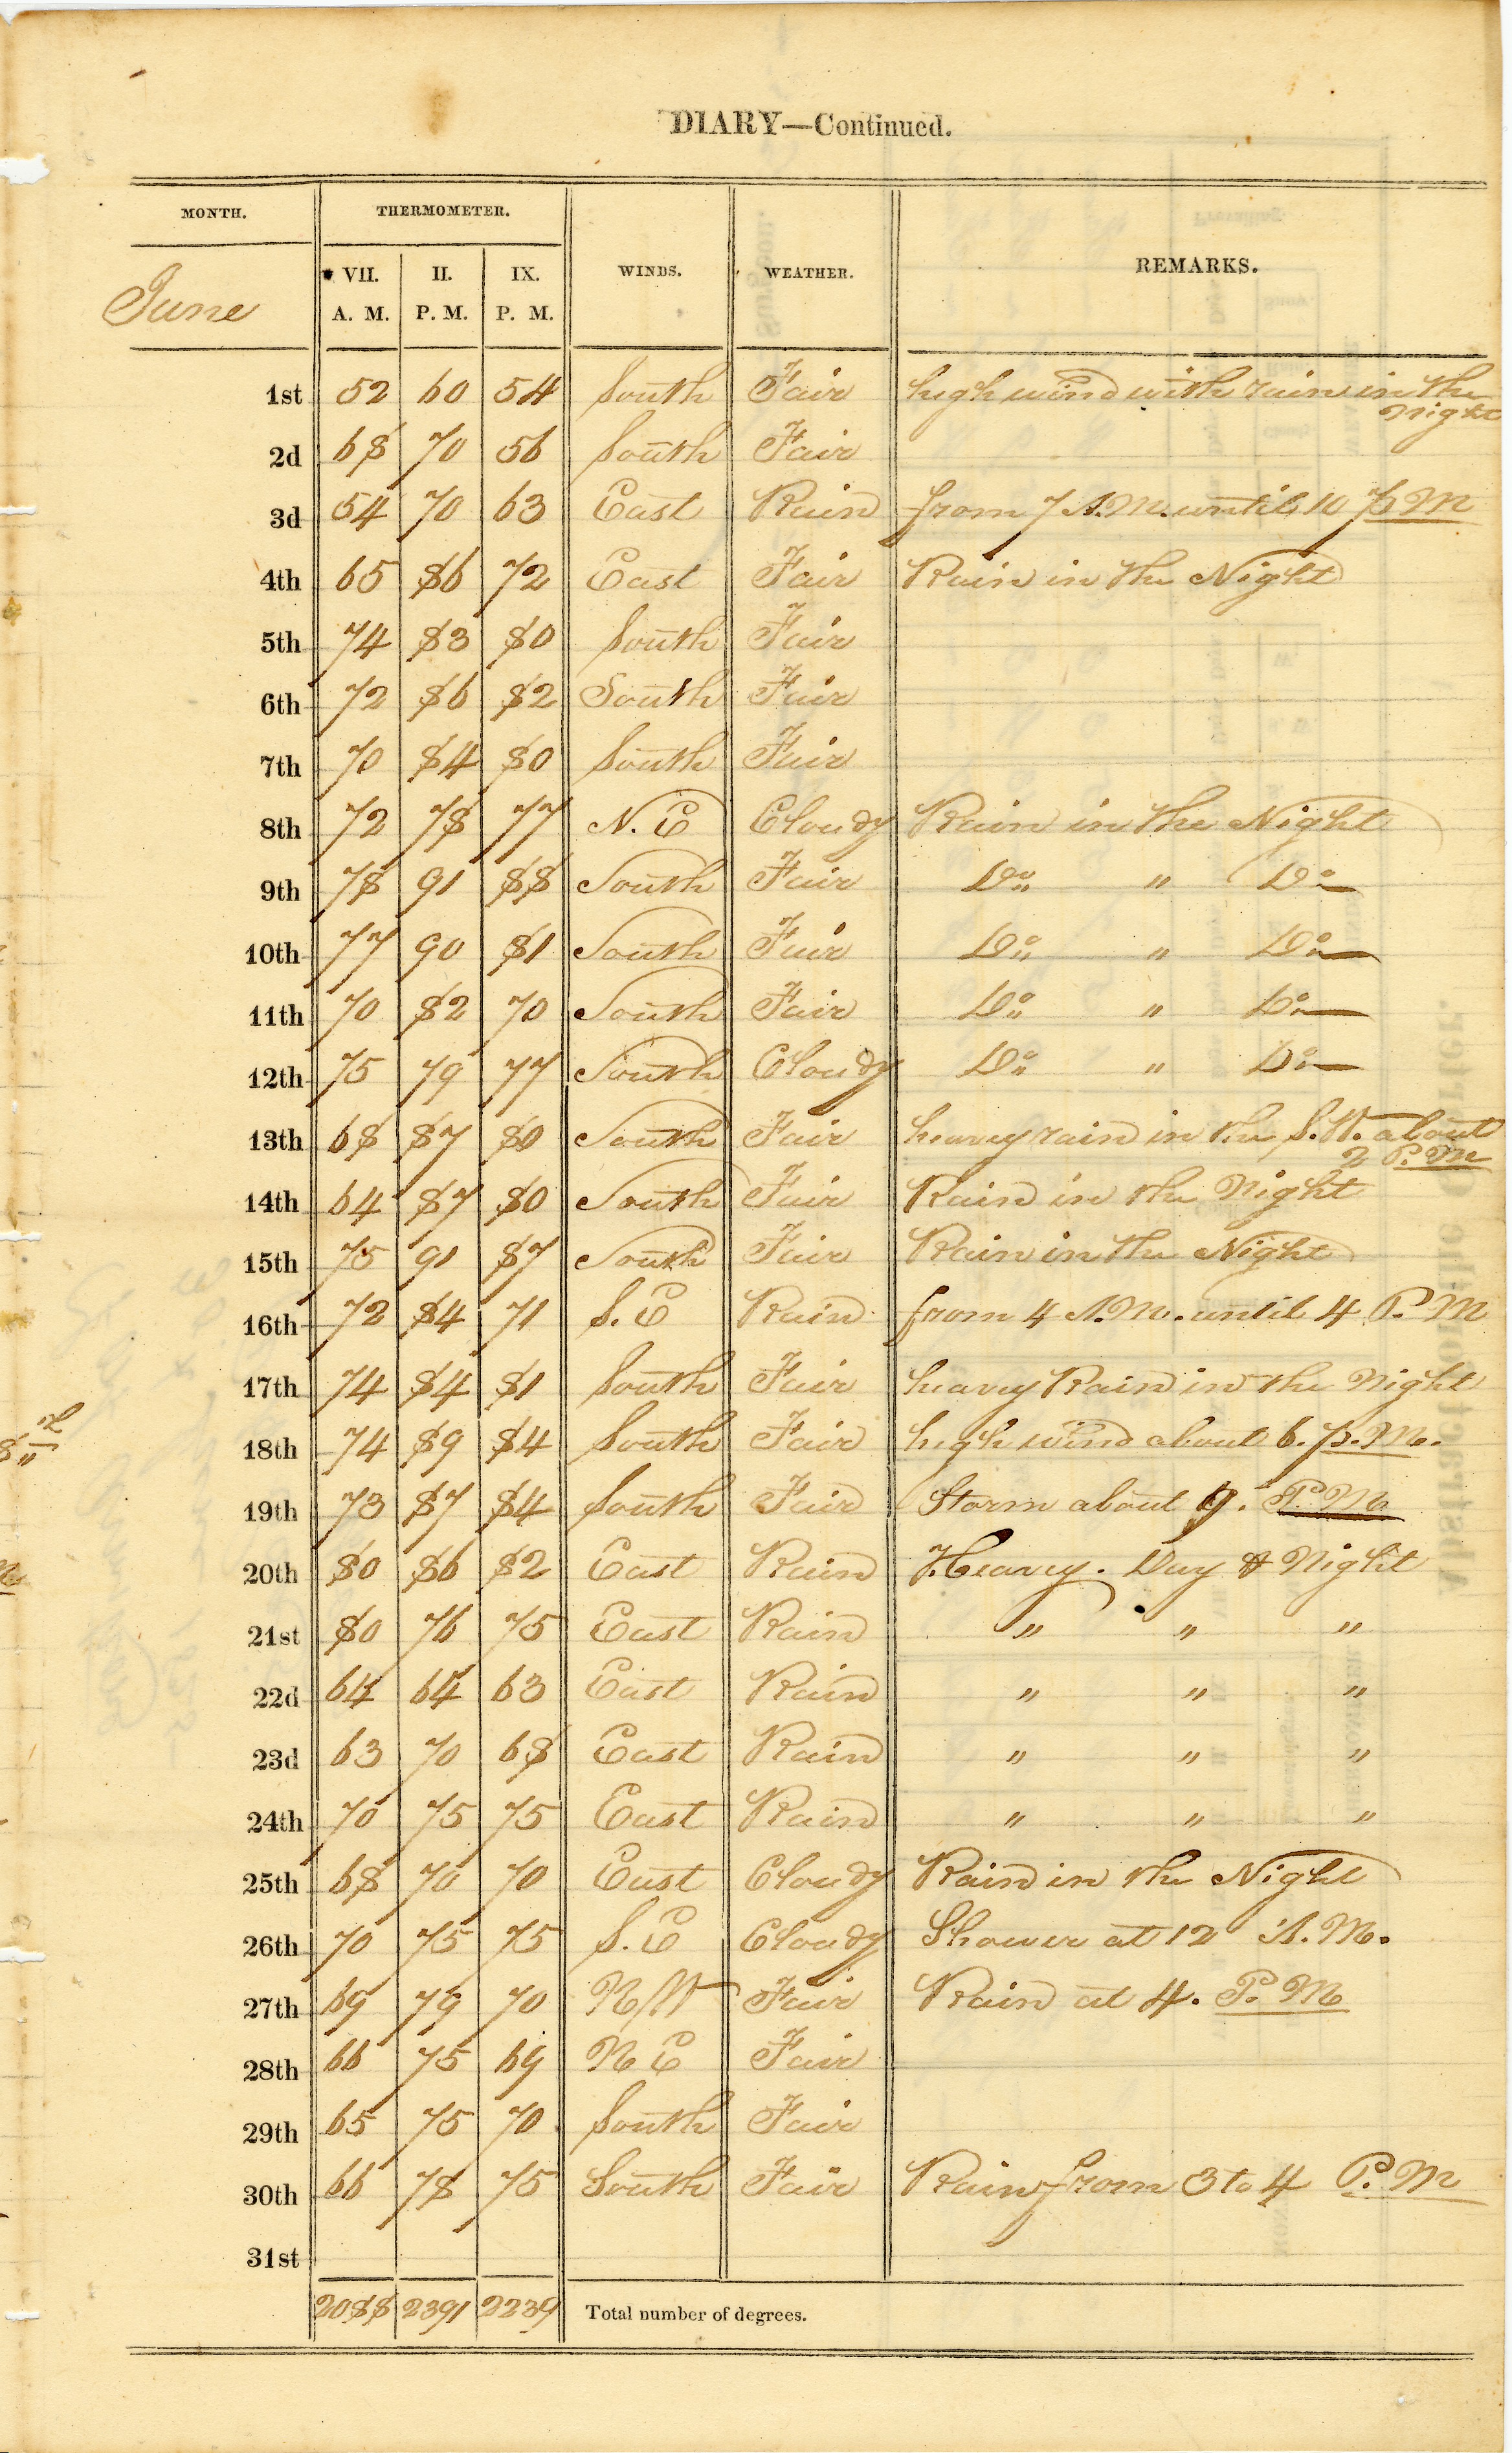 DIARY—Continued.
MONTH. THERMOMETER. WINDS. WEATHER. REMARKS.
VII. II. IX.
June A. M. P. M. P. M.
1st 52 60 54 South Fair high wind with rain in the
Night
2d 68 70 56 South Fair
3d 54 70 63 East Rain from 7 A.M. until 10 P.M
4th 65 86 72 East Fair Rain in the Night
5th 74 83 80 South Fair
6th 72 86 82 South Fair
7th 70 84 80 South Fair
8th 72 78 77 N. E Cloudy Rain in the Night
9th 78 91 88 South Fair Do " Do
10th 77 90 81 South Fair Do " Do
11th 70 82 70 South Fair Do " Do
12th 75 79 77 South Cloudy Do " Do
13th 68 87 80 South Fair heavy rain in the S.W. about
2 P.M
14th 64 87 80 South Fair Rain in the Night
15th 75 91 87 South Fair Rain in the Night
16th 72 84 71 S. E Rain from 4 A.M. until 4 P.M
17th 74 84 81 South Fair heavy Rain in the Night
18th 74 89 84 South Fair high wind about 6. p.M.
19th 73 87 84 South Fair Storm about 9. P.M.
20th 80 86 82 East Rain Heavy. Day & Night
21st 80 76 75 East Rain " " "
22d 64 64 63 East Rain " " "
23d 63 70 68 East Rain " " "
24th 70 75 75 East Rain " " "
25th 68 70 70 East Cloudy Rain in the Night
26th 70 75 75 S. E Cloudy Shower at 12 A.M.
27th 69 79 70 N W Fair Rain at 4. P.M
28th 66 75 69 N E Fair
29th 65 75 70 South Fair
30th 66 78 75 South Fair Rain from 3 to 4 P.M
31st
2088 2391 2239 Total number of degrees.